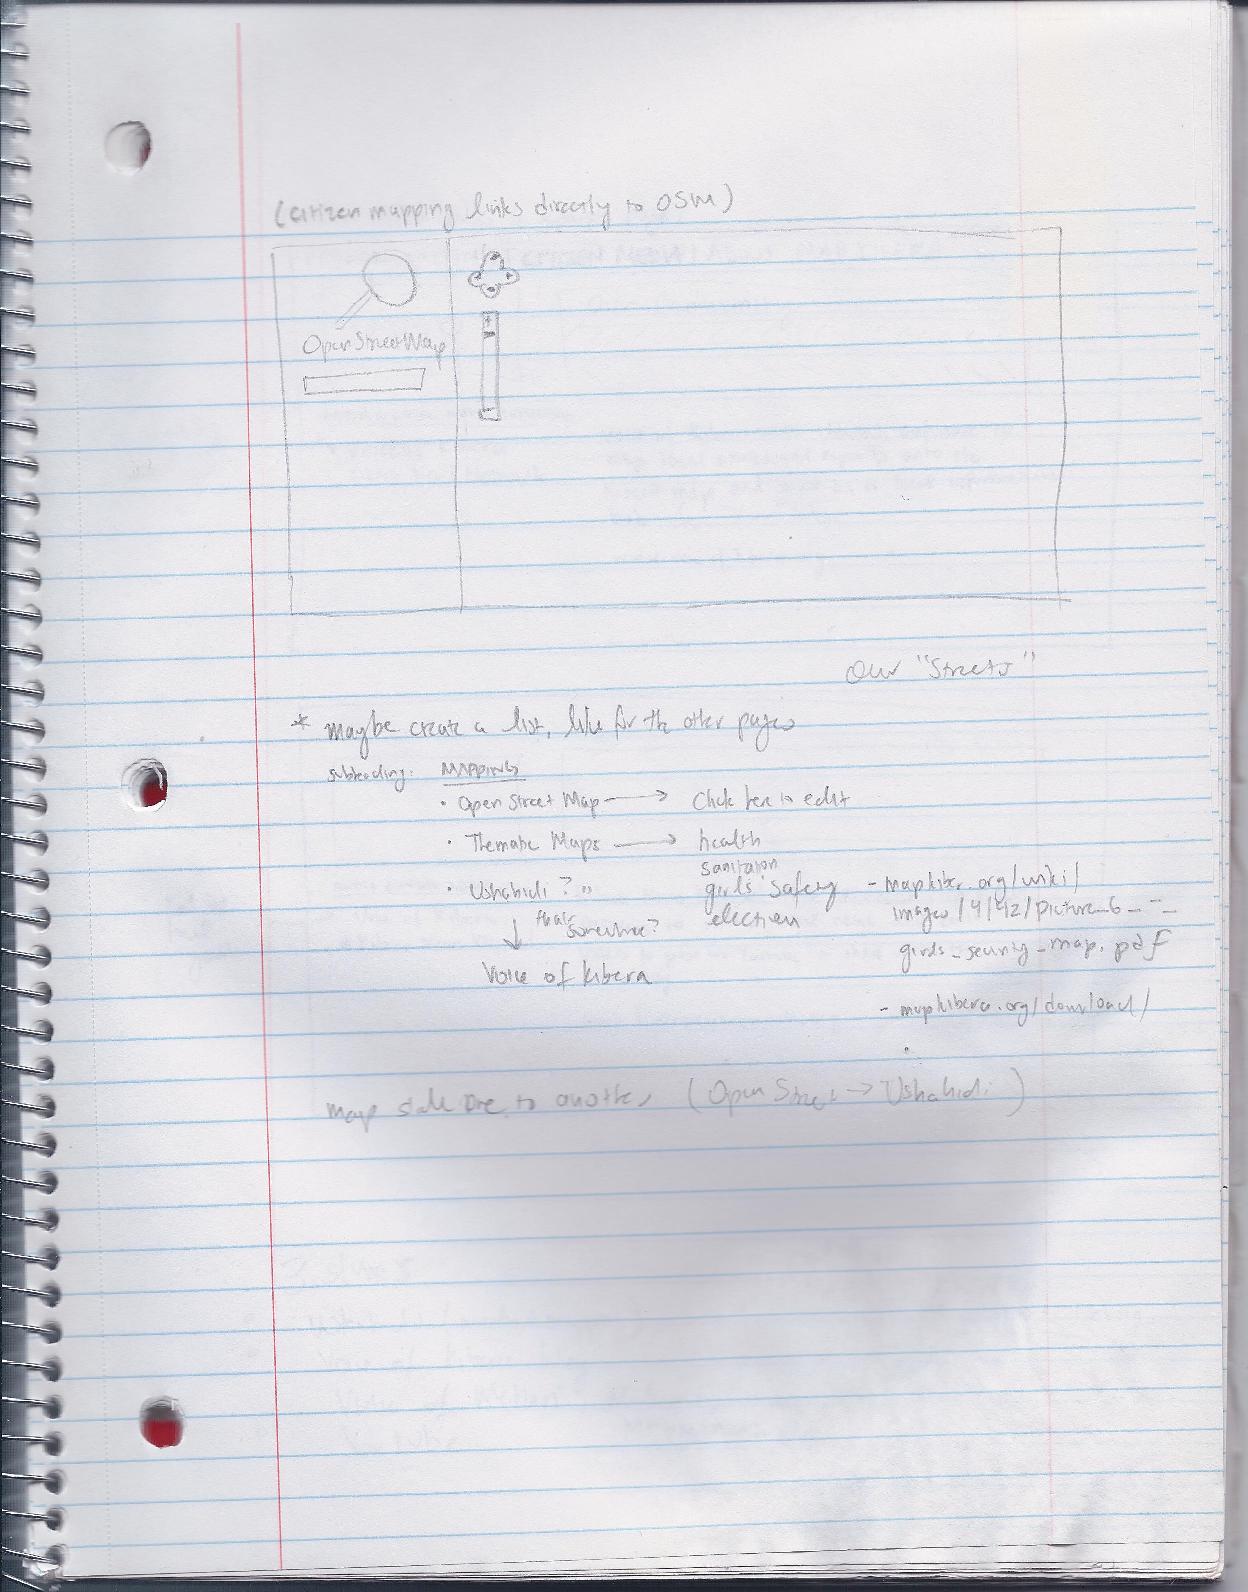 (citizen mapping links directly to OSM)
OpenStreetMap
+
-
Our "Streets"
* maybe create a list, like for the other pages
subheading: MAPPING
• Open Street Map → Click here to edit
• Thematic Maps → health
sanitation
• Ushahidi? " girls' safety - mapkibera.org/wiki/
↓ somewhere? election images/4/42/picture_6_--_
girls_security_map.pdf
Voice of Kibera
- mapkibera.org/download/
map side one to another (Open Street → Ushahidi)